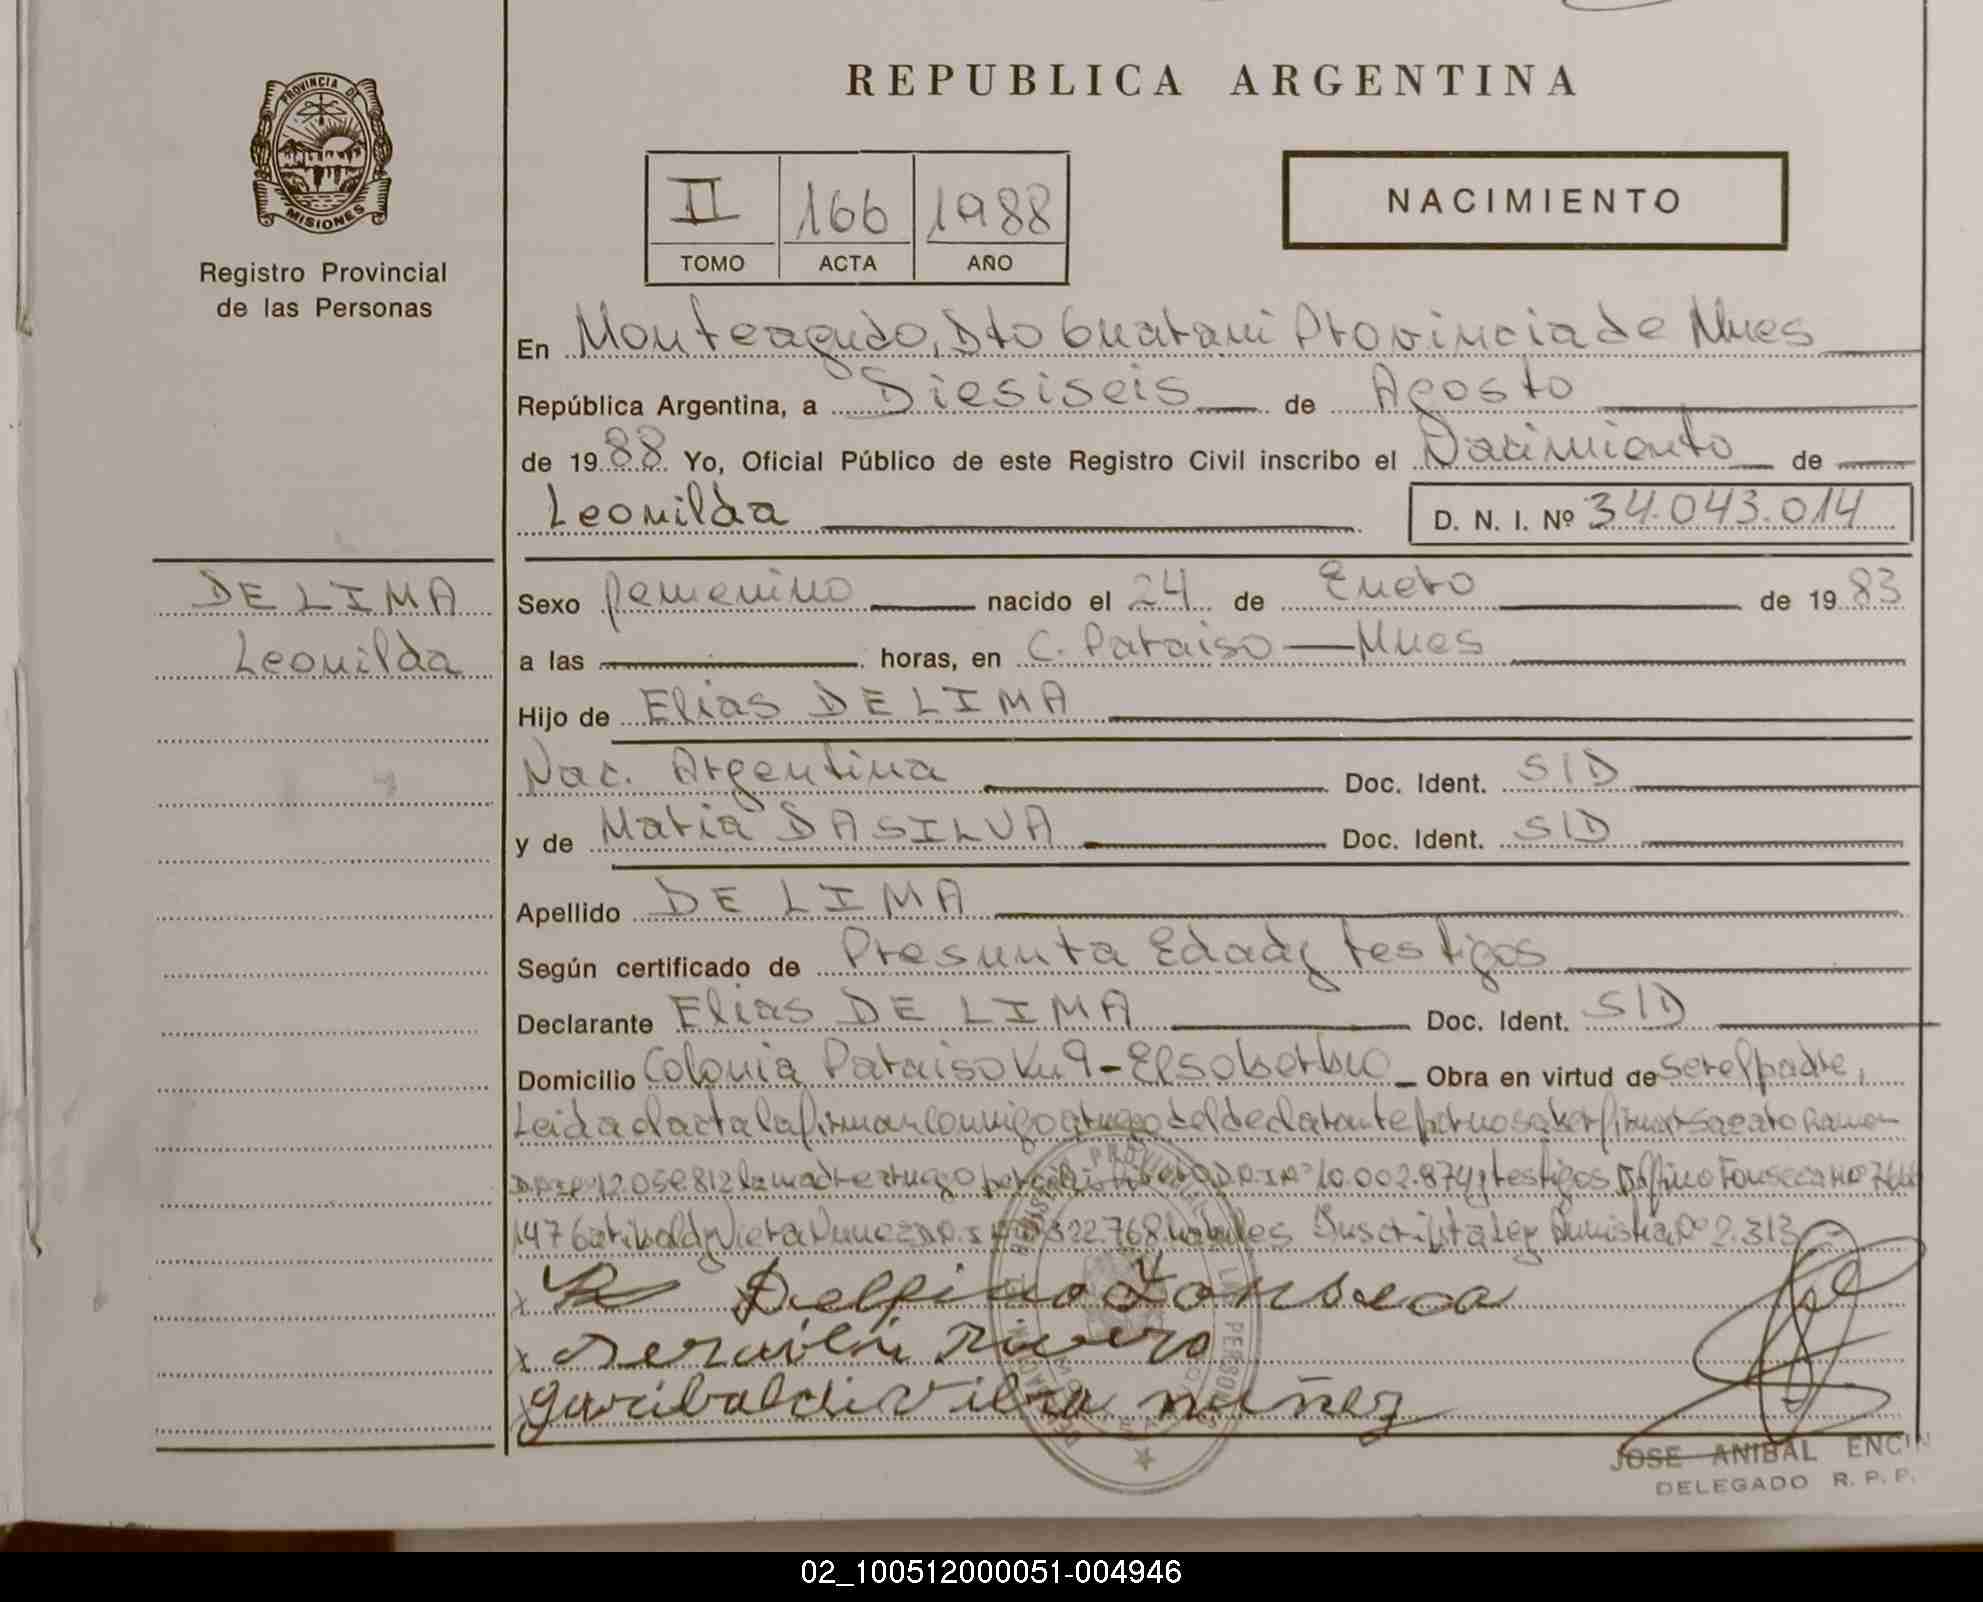 REPUBLICA ARGENTINA
PROVINCIA DE
MISIONES
Registro Provincial
de las Personas
II 166 1988
TOMO ACTA AÑO
NACIMIENTO
En Monteagudo, Dto Guarani Provincia de Mnes
República Argentina, a Diesiseis de Agosto
de 1988 Yo, Oficial Público de este Registro Civil inscribo el Nacimiento de
Leonilda D. N. I. Nº 34.043.014
DE LIMA
Leonilda
Sexo femenino nacido el 24 de Enero de 1983
a las horas, en C. Paraiso — Mnes
Hijo de Elias DE LIMA
Nac. Argentina Doc. Ident. S/D
y de Maria DA SILVA Doc. Ident. S/D
Apellido DE LIMA
Según certificado de Presunta Edad y testigos
Declarante Elias DE LIMA Doc. Ident. S/D
Domicilio Colonia Paraiso Km 9 - El soberbio Obra en virtud de ser el padre,
Leida el acta la firman conmigo a ruego del declarante por no saber firmar
12.059.812 la madre a ruego por 10.002.874 y testigos Delfino Fonseca
147 Garibaldy Viera Nunez 322.768 habiles Inscribta Ley Amnistia Nº 2.313
Delfino Fonseca
Rivero
garibaldi Viera nuñez
JOSE ANIBAL ENCIN
DELEGADO R. P. P.
02_100512000051-004946